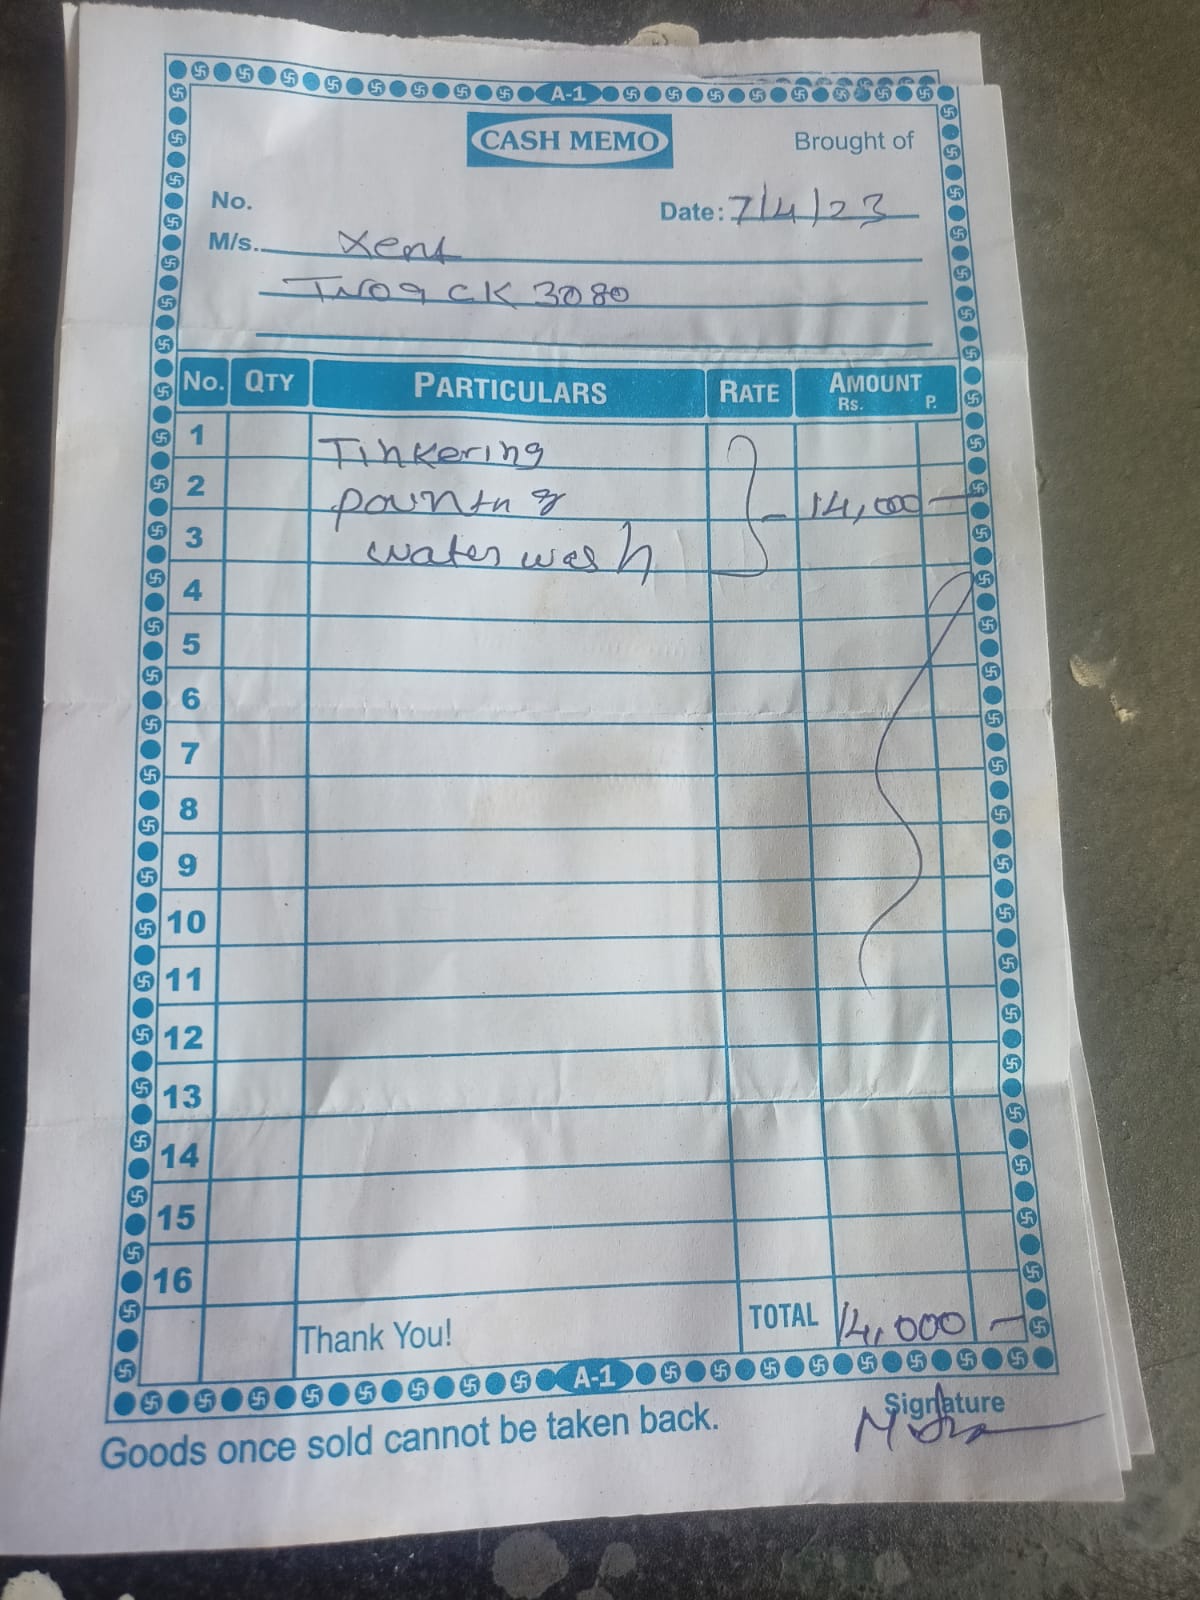 A-1
CASH MEMO
Brought of
No.
Date: 7/4/23
M/s. Xent
TN09 CK 3080
No. QTY PARTICULARS RATE AMOUNT
Rs. P.
1 Tinkering
2 14,000 —
3 water wash
4
5
6
7
8
9
10
11
12
13
14
15
16
Thank You! TOTAL 14,000 —
A-1
Signature
Goods once sold cannot be taken back.